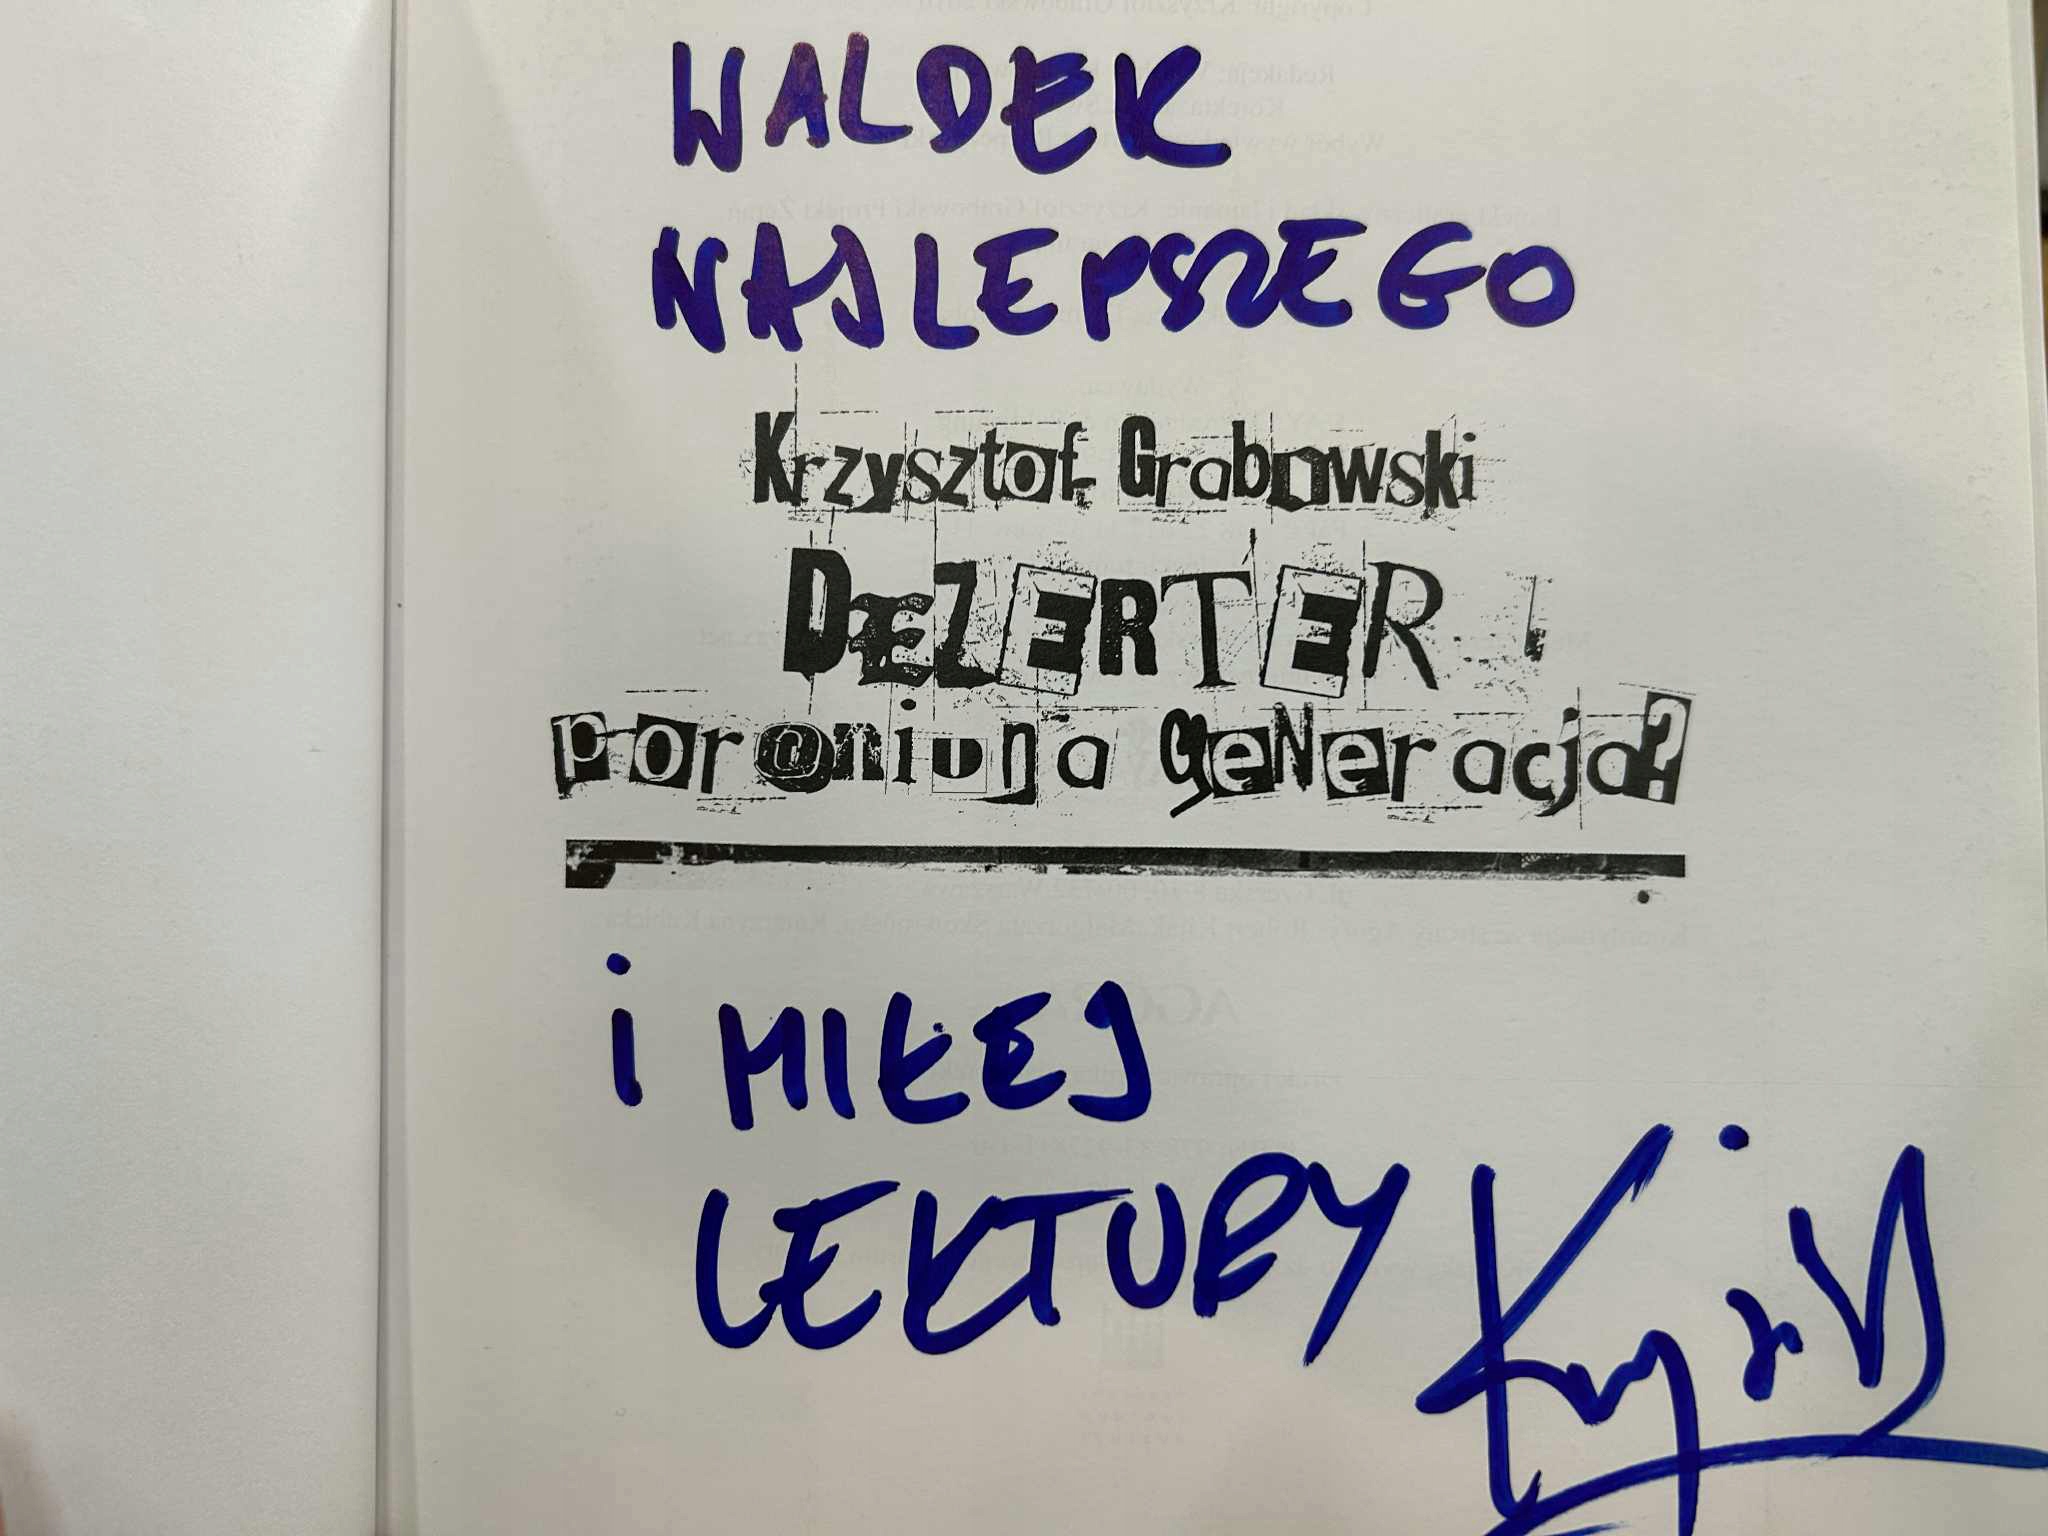 WALDEK
NAJLEPSZEGO
Krzysztof Grabowski
DEZERTER
poroniona generacja?
i MIŁEJ
LEKTURY